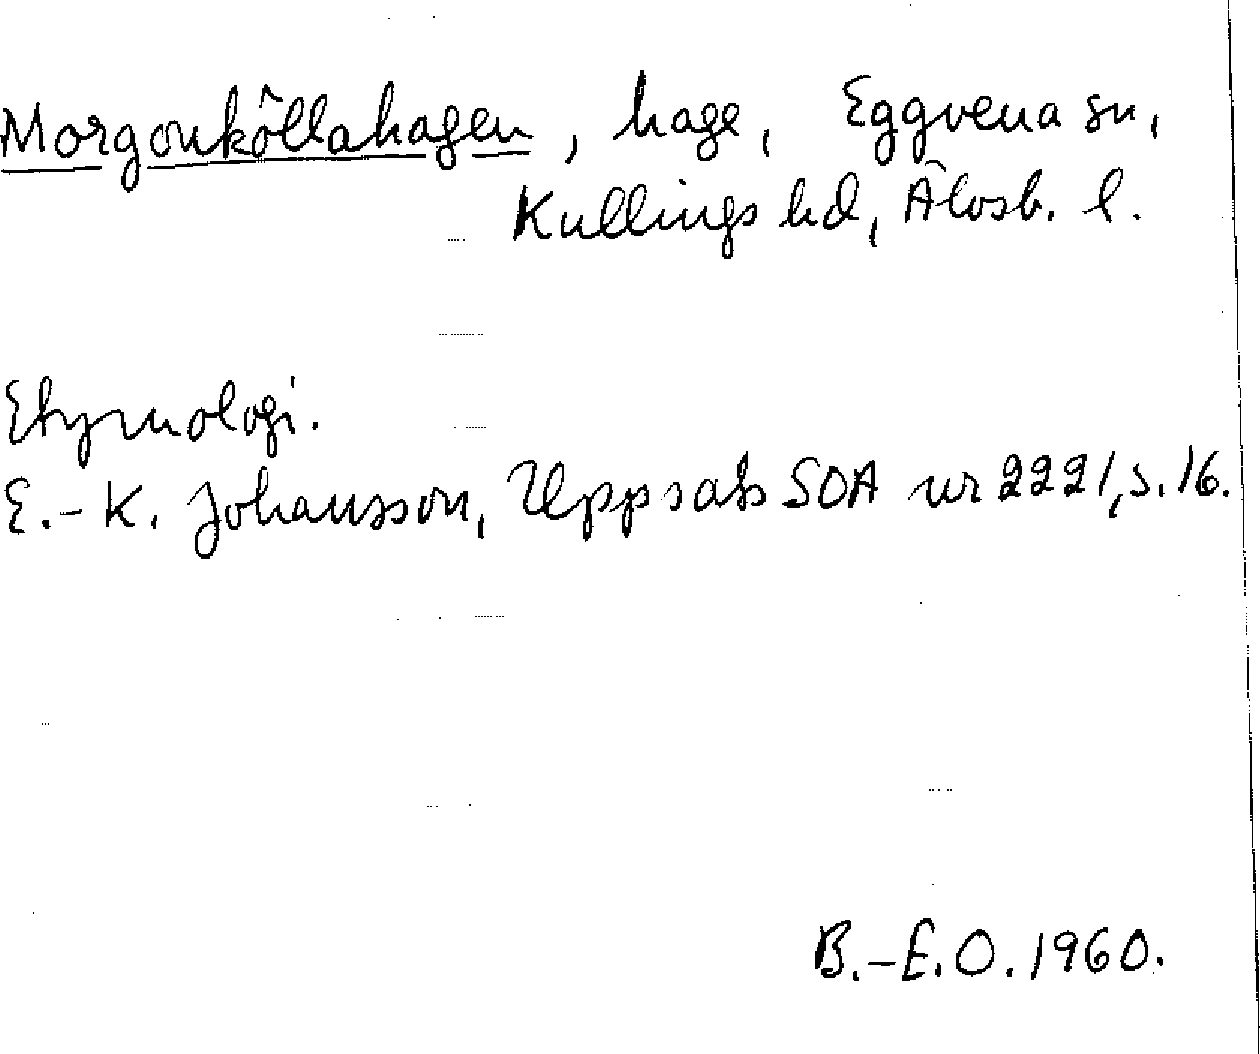 Morgonköllahagen, hage, Eggvena sn,
Kullings hd, Älvsb. l.
Etymologi.
E.-K. Johansson, Uppsats SOA nr 2221, s. 16.
B.-E.O. 1960.